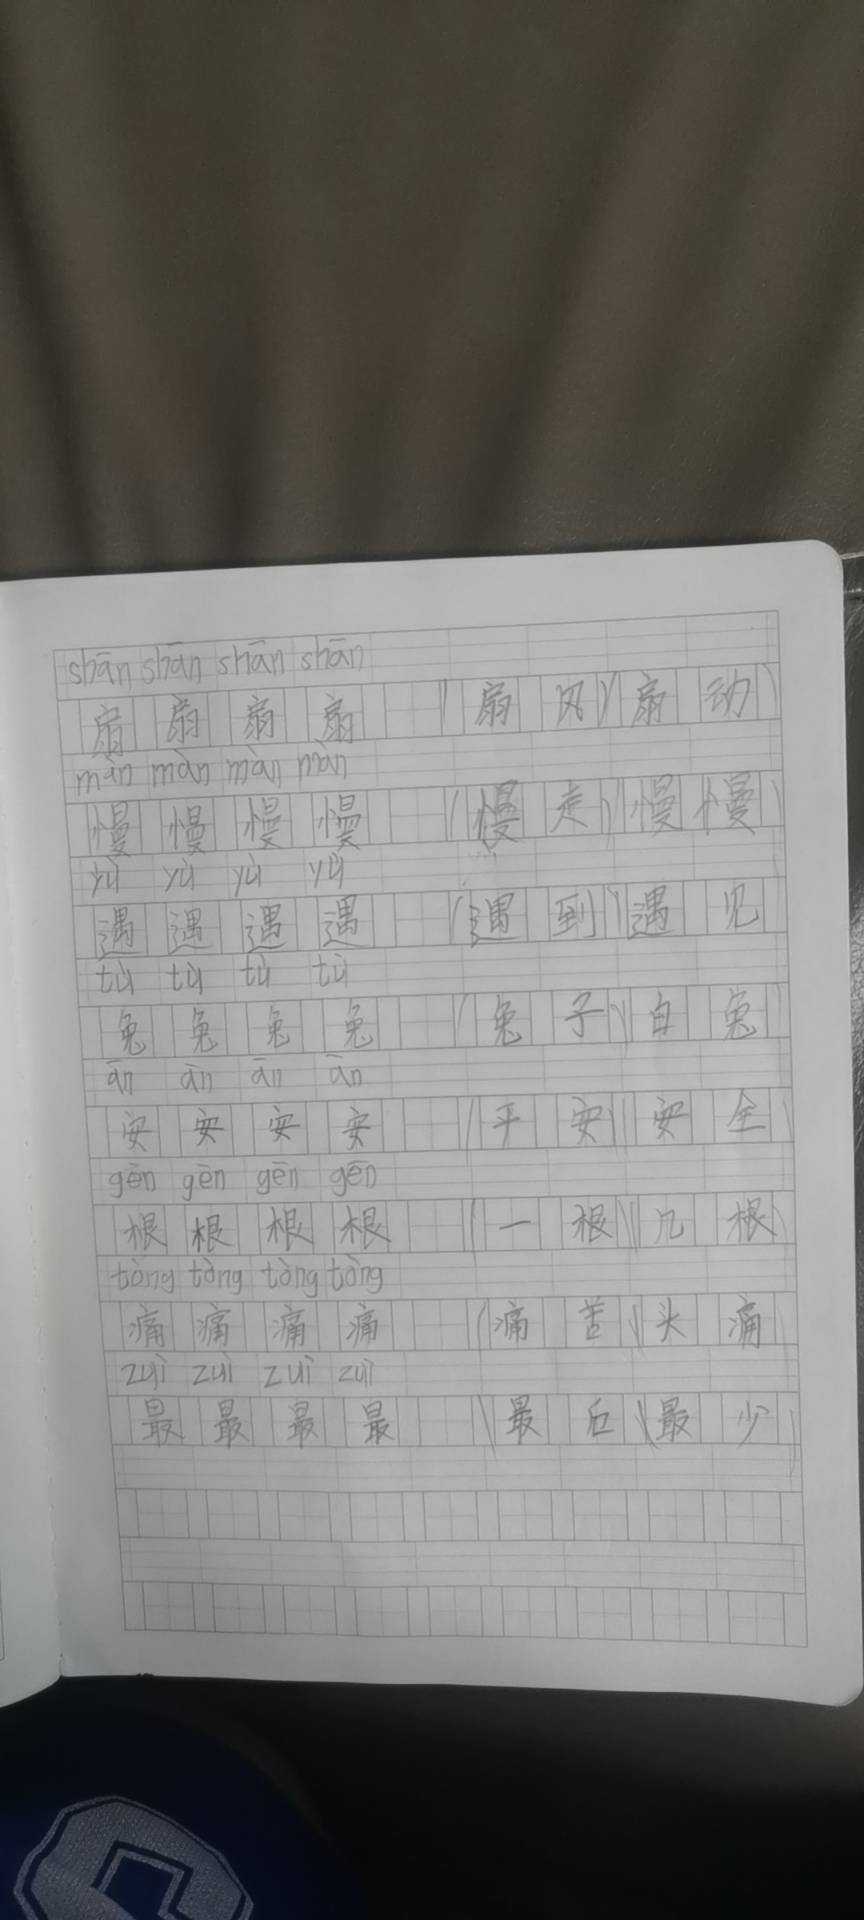 shān shān shān shān
扇 扇 扇 扇 (扇风)(扇动)
màn màn màn màn
慢 慢 慢 慢 (慢走)(慢慢)
yù yù yù yù
遇 遇 遇 遇 (遇到)(遇见)
tù tù tù tù
兔 兔 兔 兔 (兔子)(白兔)
ān ān ān ān
安 安 安 安 (平安)(安全)
gēn gēn gēn gēn
根 根 根 根 (一根)(几根)
tòng tòng tòng tòng
痛 痛 痛 痛 (痛苦)(头痛)
zuì zuì zuì zuì
最 最 最 最 (最后)(最少)